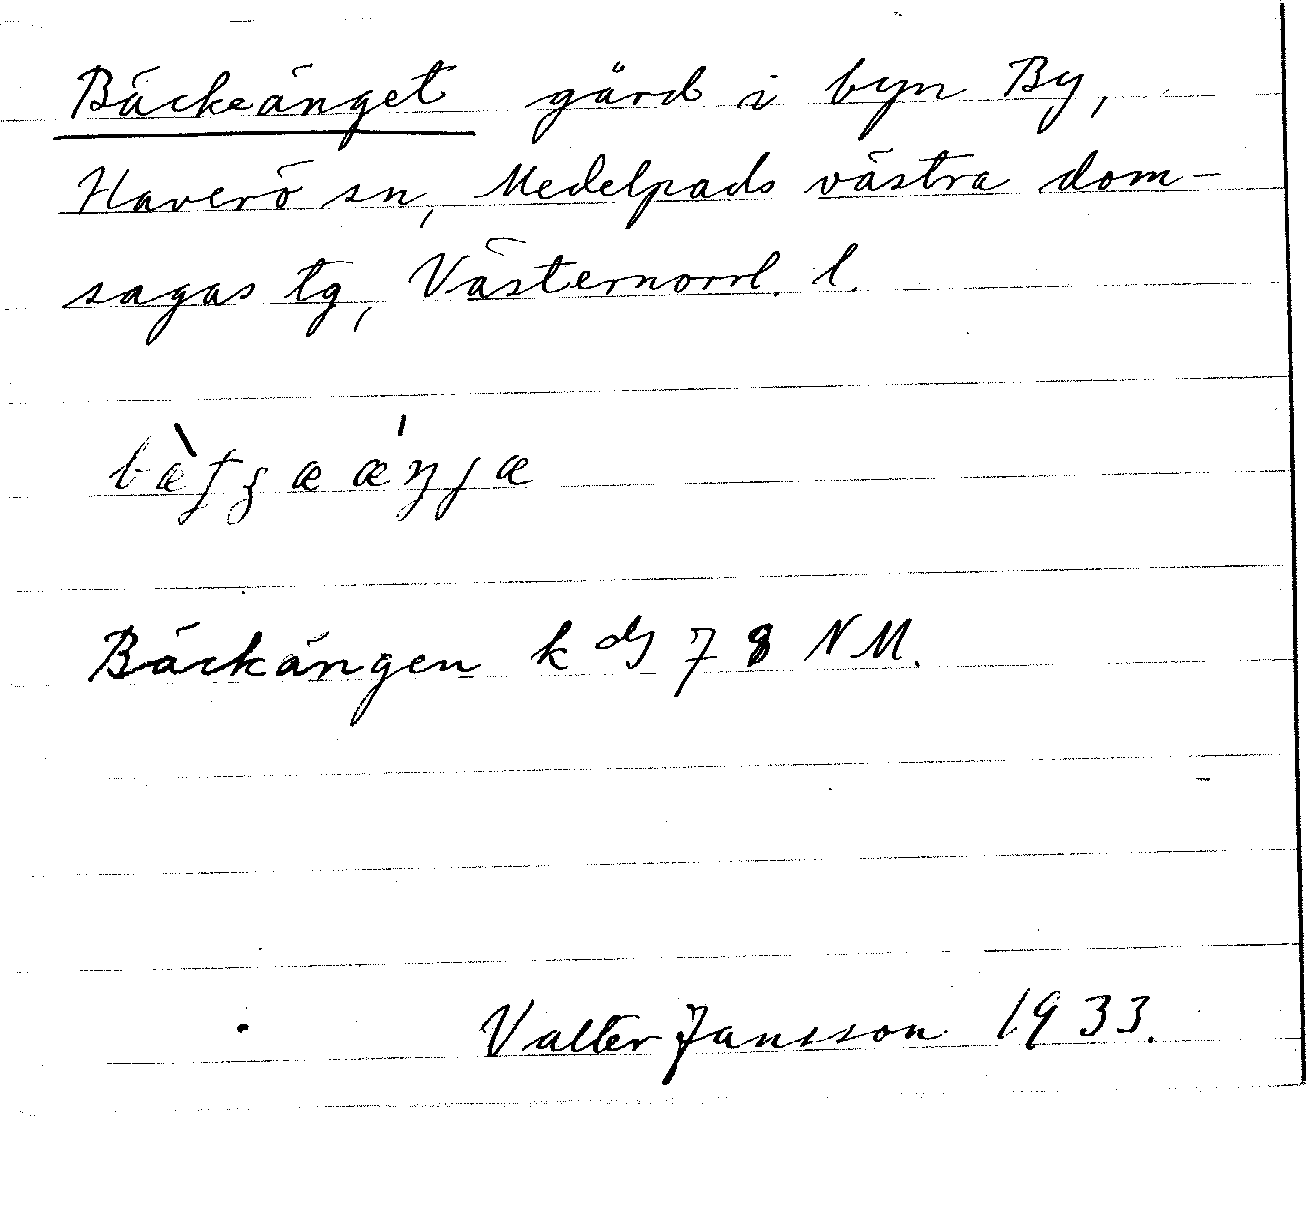 Bäckeänget gård i byn By,
Haverö sn, Medelpads västra dom-
sagas tg, Västernorrl. l.
Bäckängen k 78 NM.
Valter Jansson 1933.